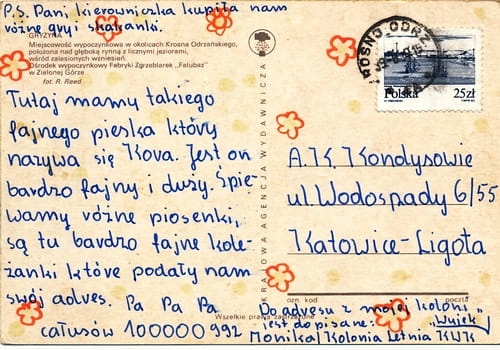 P.S. Pani kierowniczka kupiła nam
różne gry i skakanki.
GRYŻYNA
Miejscowość wypoczynkowa w okolicach Krosna Odrzańskiego,
położona nad głęboką rynną z licznymi jeziorami,
wśród zalesionych wzniesień.
Ośrodek wypoczynkowy Fabryki Zgrzeblarek „Falubaz”
w Zielonej Górze
fot. R. Reed
Tutaj mamy takiego
fajnego pieska który
nazywa się Kova. Jest on
bardzo fajny i duży. Śpie-
wamy różne piosenki,
są tu bardzo fajne kole-
żanki które podały nam
swój adres. Pa Pa Pa
całusów 100000 992
KRAJOWA AGENCJA WYDAWNICZA
KROSNO ODRZ
Polska 25zł
A.K. Kondysowie
ul. Wodospady 6/55
Katowice-Ligota
ozn. kod poczta
Wszelkie prawa zastrzeżone
Do adresu z mojej koloni
jest do pisane: „Wujek”
Monika/Kolonia Letnia KWK